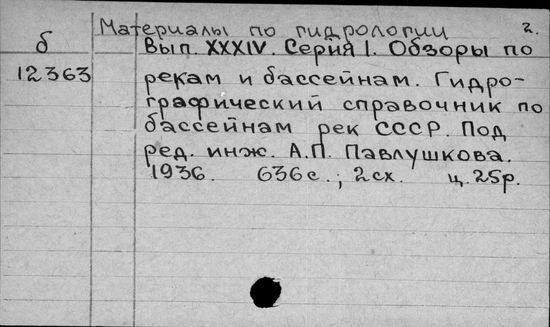 Материалы по гидрологии 2.
б Вып. XXXIV. Серия I. Обзоры по
12363 рекам и бассейнам. Гидро-
графический справочник по
бассейнам рек СССР. Под
ред. инж. А.П. Павлушкова.
1936. 636 с.; 2 сх. ц. 25р.